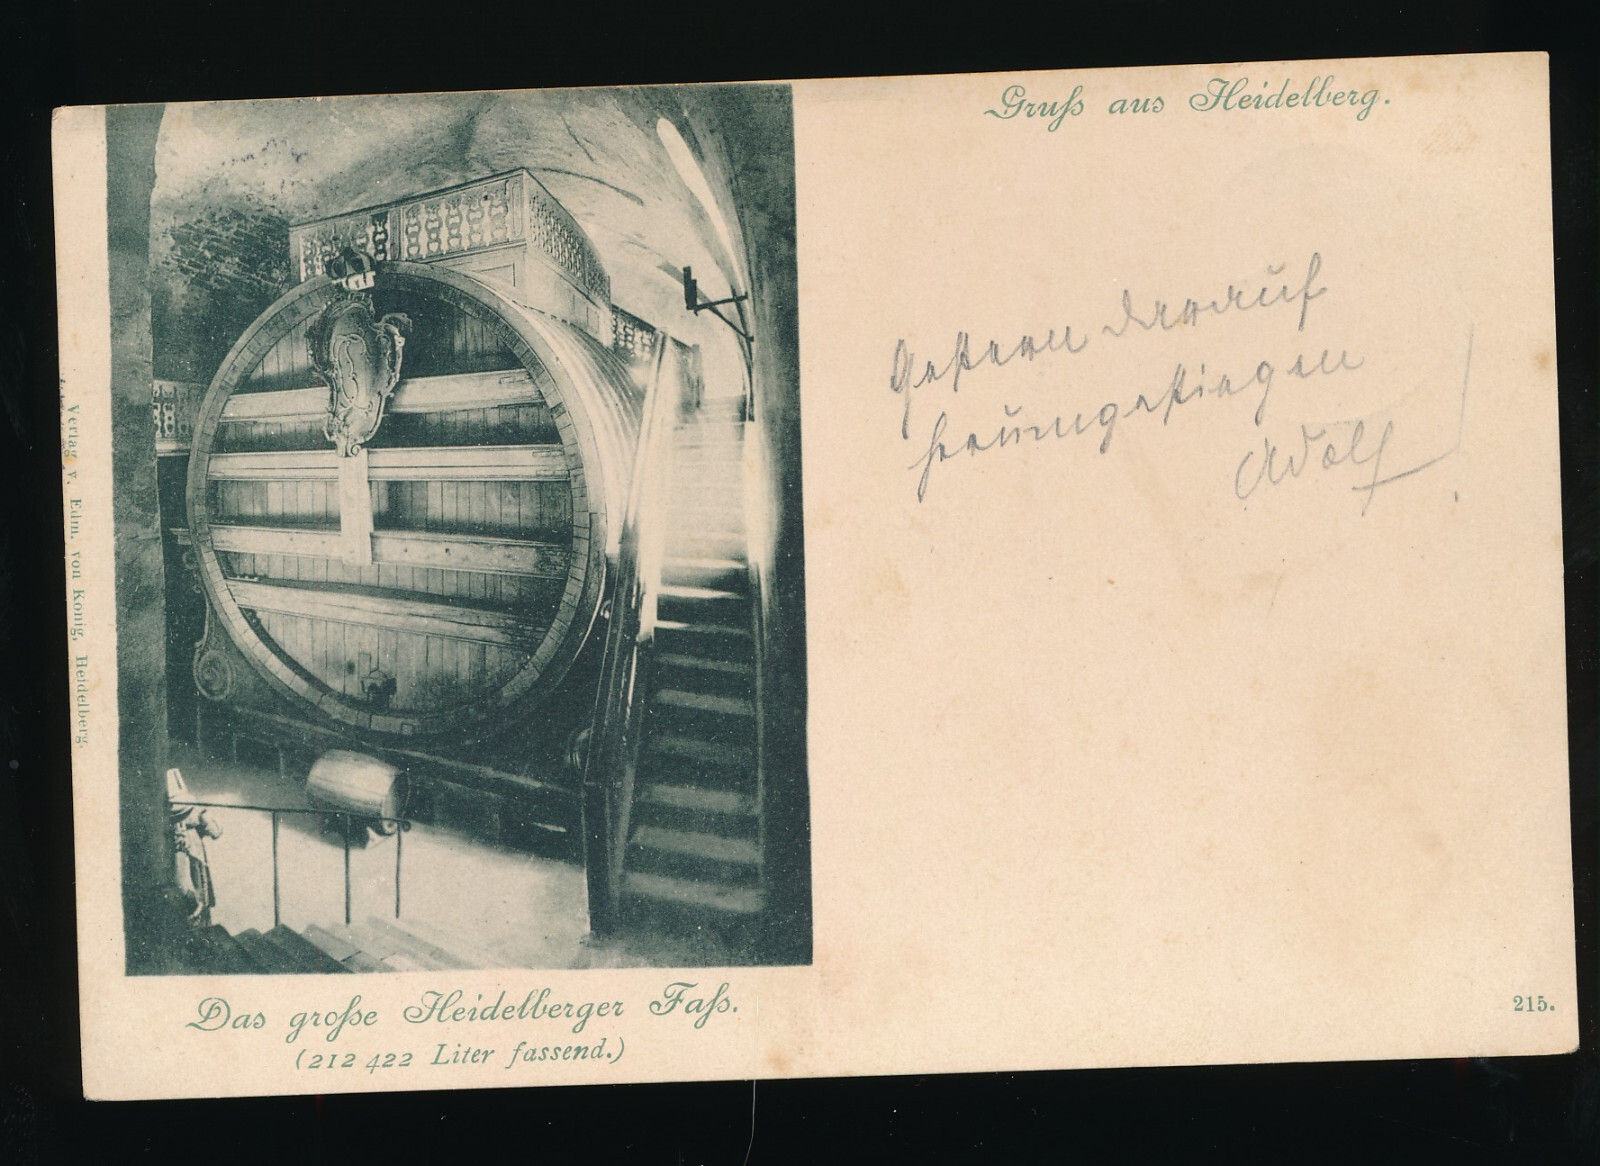 Gruß aus Heidelberg.
Gestern darauf
herumgestiegen
Adolf
Verlag v. Edm. von König, Heidelberg.
Das große Heidelberger Faß.
(212 422 Liter fassend.)
215.